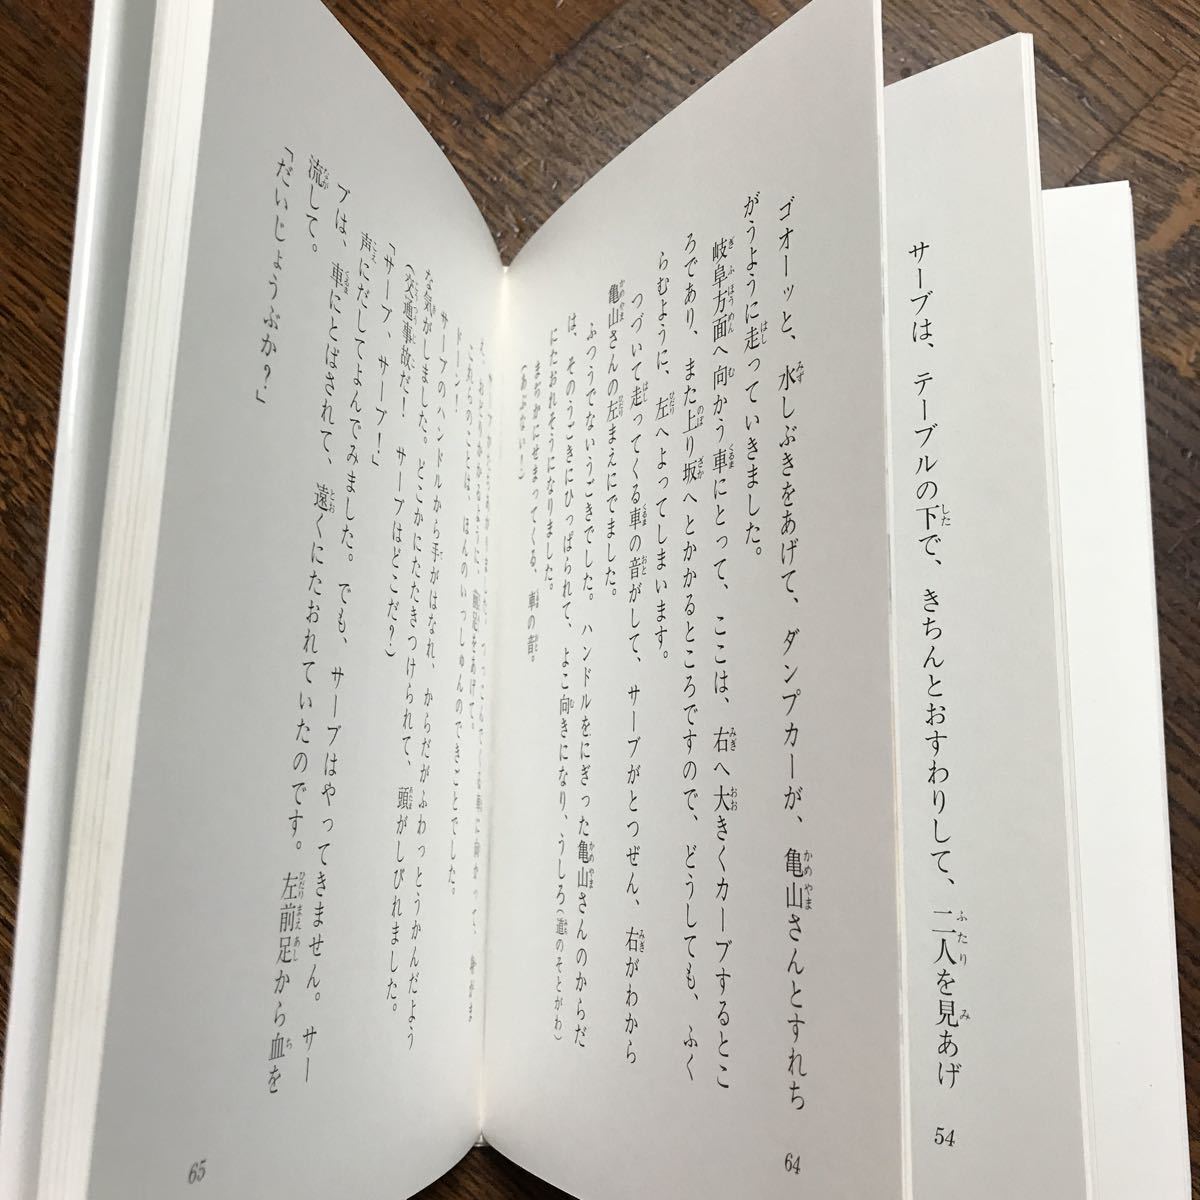 サーブは、テーブルの下で、きちんとおすわりして、二人を見あげ
54
ゴオーッと、水しぶきをあげて、ダンプカーが、亀山さんとすれち
がうように走っていきました。
岐阜方面へ向かう車にとって、ここは、右へ大きくカーブするとこ
ろであり、また上り坂へとかかるところですので、どうしても、ふく
らむように、左へよってしまいます。
つづいて走ってくる車の音がして、サーブがとつぜん、右がわから
亀山さんの左まえにでました。
ふつうでないうごきでした。ハンドルをにぎった亀山さんのからだ
は、そのうごきにひっぱられて、よこ向きになり、うしろ(道のそとがわ)
にたおれそうになりました。
まぢかにせまってくる、車の音。
(あぶない!)
64
つっこんでくる車に向かって、
え、おどりかかるように、前足をあげて。
これらのことは、ほんのいっしゅんのできごとでした。
ドーン!
サーブのハンドルから手がはなれ、からだがふわっとうかんだよう
な気がしました。どこかにたたきつけられて、頭がしびれました。
(交通事故だ! サーブはどこだ?)
「サーブ、サーブ!」
声にだしてよんでみました。でも、サーブはやってきません。サー
ブは、車にとばされて、遠くにたおれていたのです。左前足から血を
流して。
「だいじょうぶか?」
65